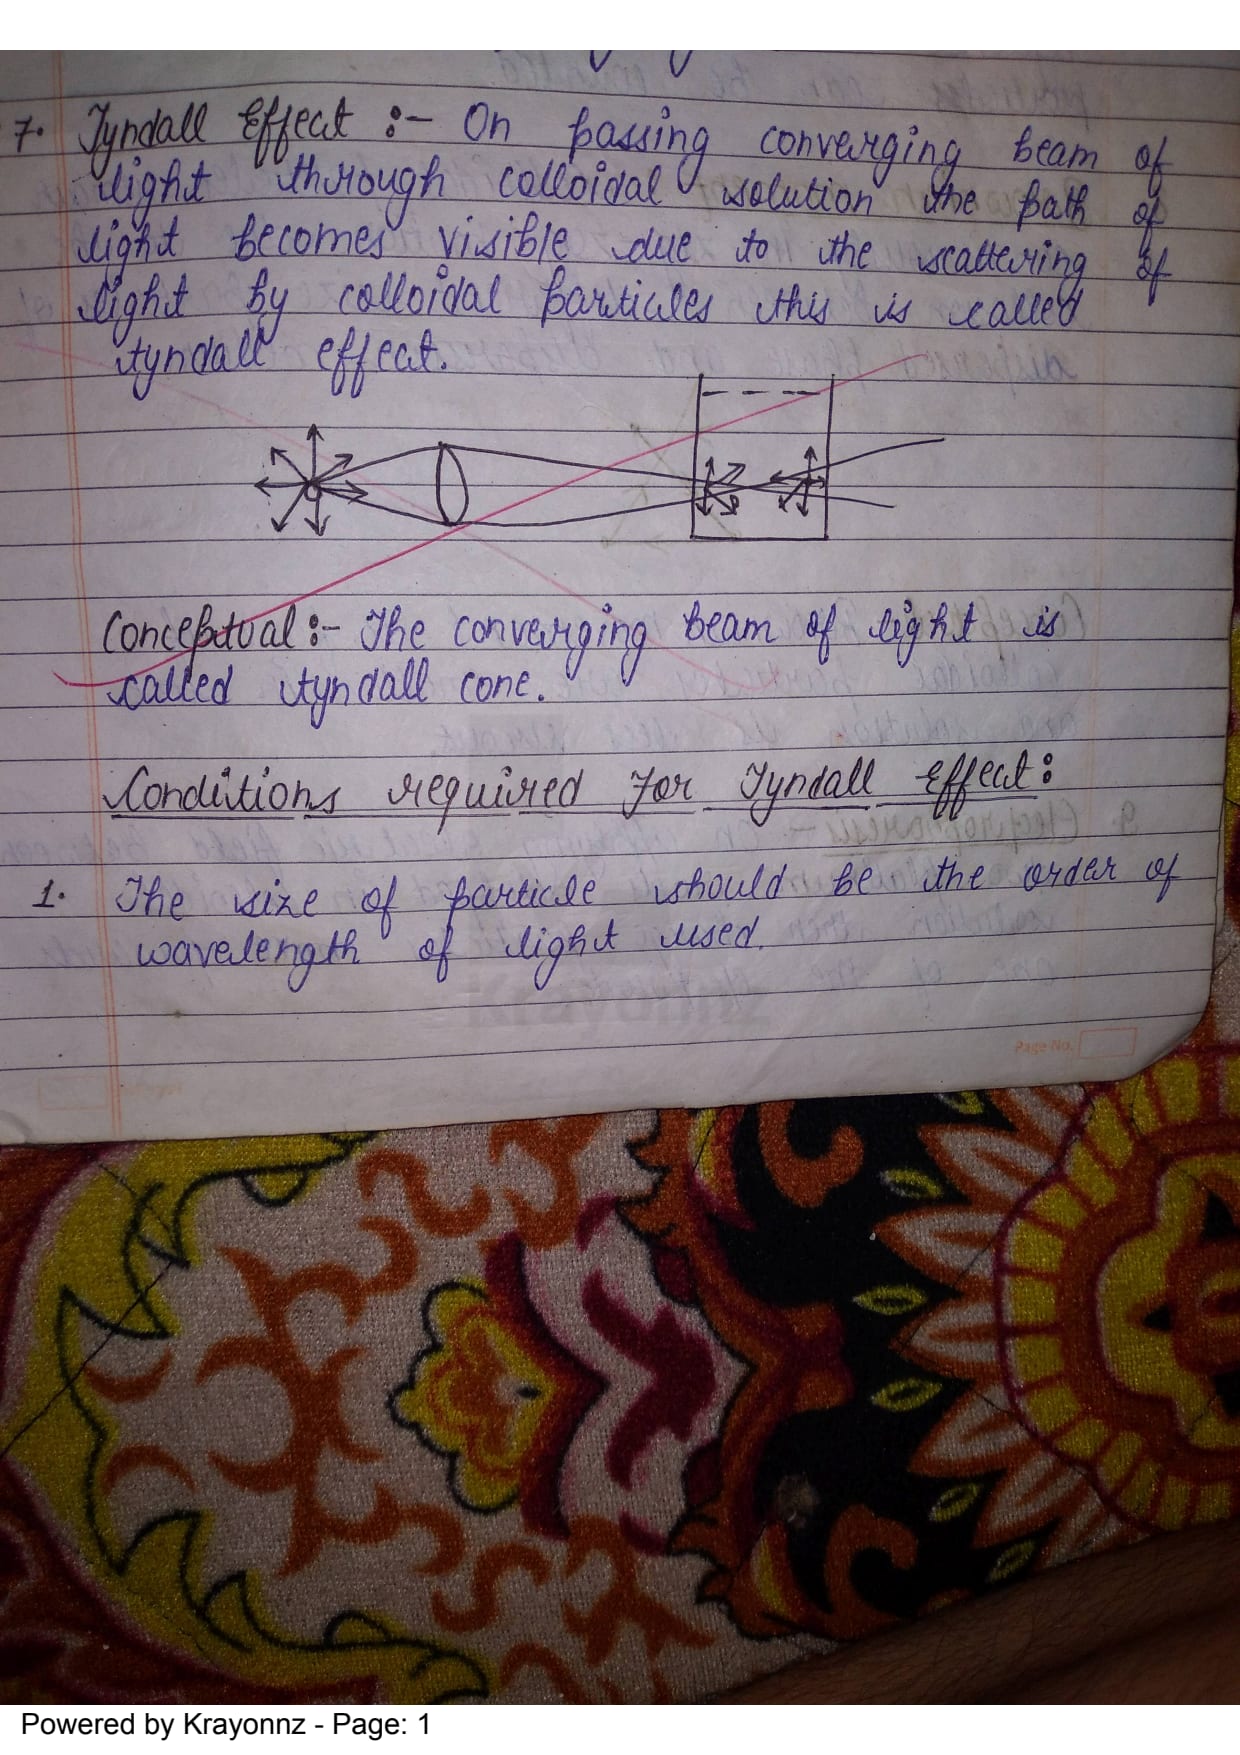 7. Tyndall Effect :- On passing converging beam of
light through colloidal solution the path of
light becomes visible due to the scattering of
light by colloidal particles this is called
tyndall effect.
Conceptual :- The converging beam of light is
called tyndall cone.
Conditions required for Tyndall effect :
1. The size of particle should be the order of
wavelength of light used.
Krayonnz
Page No.
Powered by Krayonnz - Page: 1